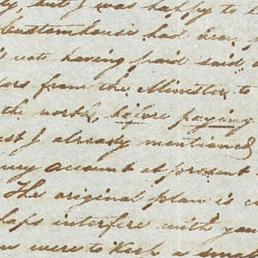 but I was happy to
customhouse had been
not having paid said
from the Minister to
the north, before paying
I already mentioned
account at present
The original plan is
interfere with you
were to keep a small